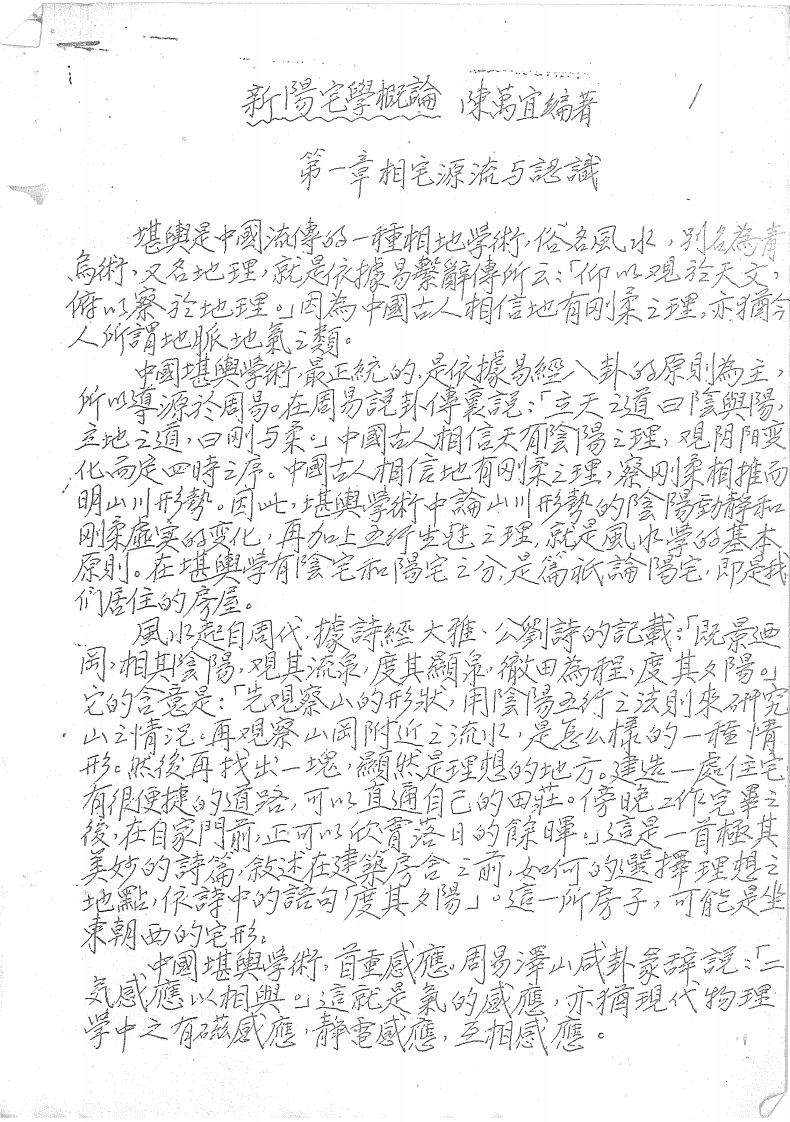 新陽宅學概論 陳萬宜編著 1
第一章相宅源流与認識
堪輿是中國流傳的一種相地學術，俗名風水，別名為青
烏術，又名地理，就是依據易繫辭傳所云：「仰以观於天文，
俯以察於地理。」因為中國古人相信地有刚柔之理，亦猶今
人所謂地脈地氣之類。
中國堪輿學術，最正統的，是依據易經八卦的原則為主，
所以導源於周易。在周易說卦傳裏說：「立天之道曰陰與陽，
立地之道，曰刚与柔。」中國古人相信天有陰陽之理，观阴阳变
化而定四時之序。中國古人相信地有刚柔之理，察刚柔相推而
明山川形勢。因此，堪輿學術中論山川形勢的陰陽動静和
刚柔虛实的变化，再加上五行生尅之理，就是風水學的基本
原則。在堪輿學有陰宅和陽宅之分，是篇祇論陽宅，即是我
們居住的房屋。
風水起自周代，據詩經大雅、公劉詩的記載：「既景迺
岡，相其陰陽，观其流泉，度其顯泉，徹田為程，度其夕陽。」
它的含意是：「先观察山的形狀，用陰陽五行之法則來研究
山之情况。再观察山岡附近之流水，是怎么樣的一種情
形。然後再找出一塊，顯然是理想的地方。建造一處住宅
有很便捷的道路，可以直通自己的田莊。傍晚工作完畢之
後，在自家門前，正可以欣賞落日的餘暉。」這是一首極其
美妙的詩篇，敘述在建築房舍之前，如何的選擇理想之
地點，依詩中的語句「度其夕陽」。這一所房子，可能是坐
東朝西的宅形。
中國堪輿學術，首重感應。周易澤山咸卦彖辞說：「二
気感應以相與。」這就是氣的感應，亦猶現代物理
學中之有磁感應，靜電感應，互相感應。